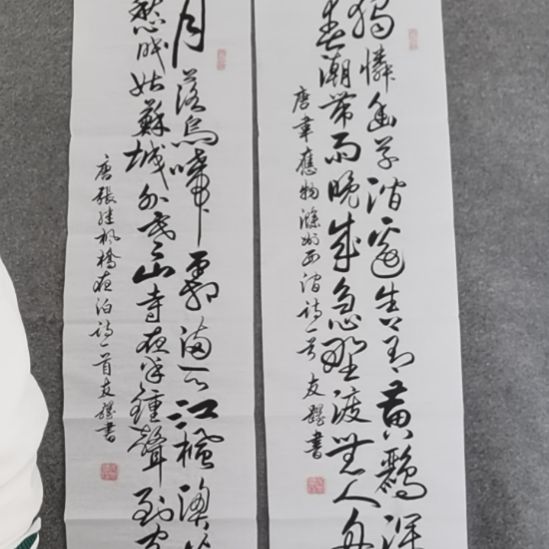 獨憐幽草澗邊生上有黄鸝深
春潮带雨晚來急野渡無人舟
唐韋應物滁州西澗诗一首 友書
月落烏啼霜満天江楓漁
愁眠姑蘇城外寒山寺夜半鐘聲到客
唐張继枫橋夜泊诗一首友書